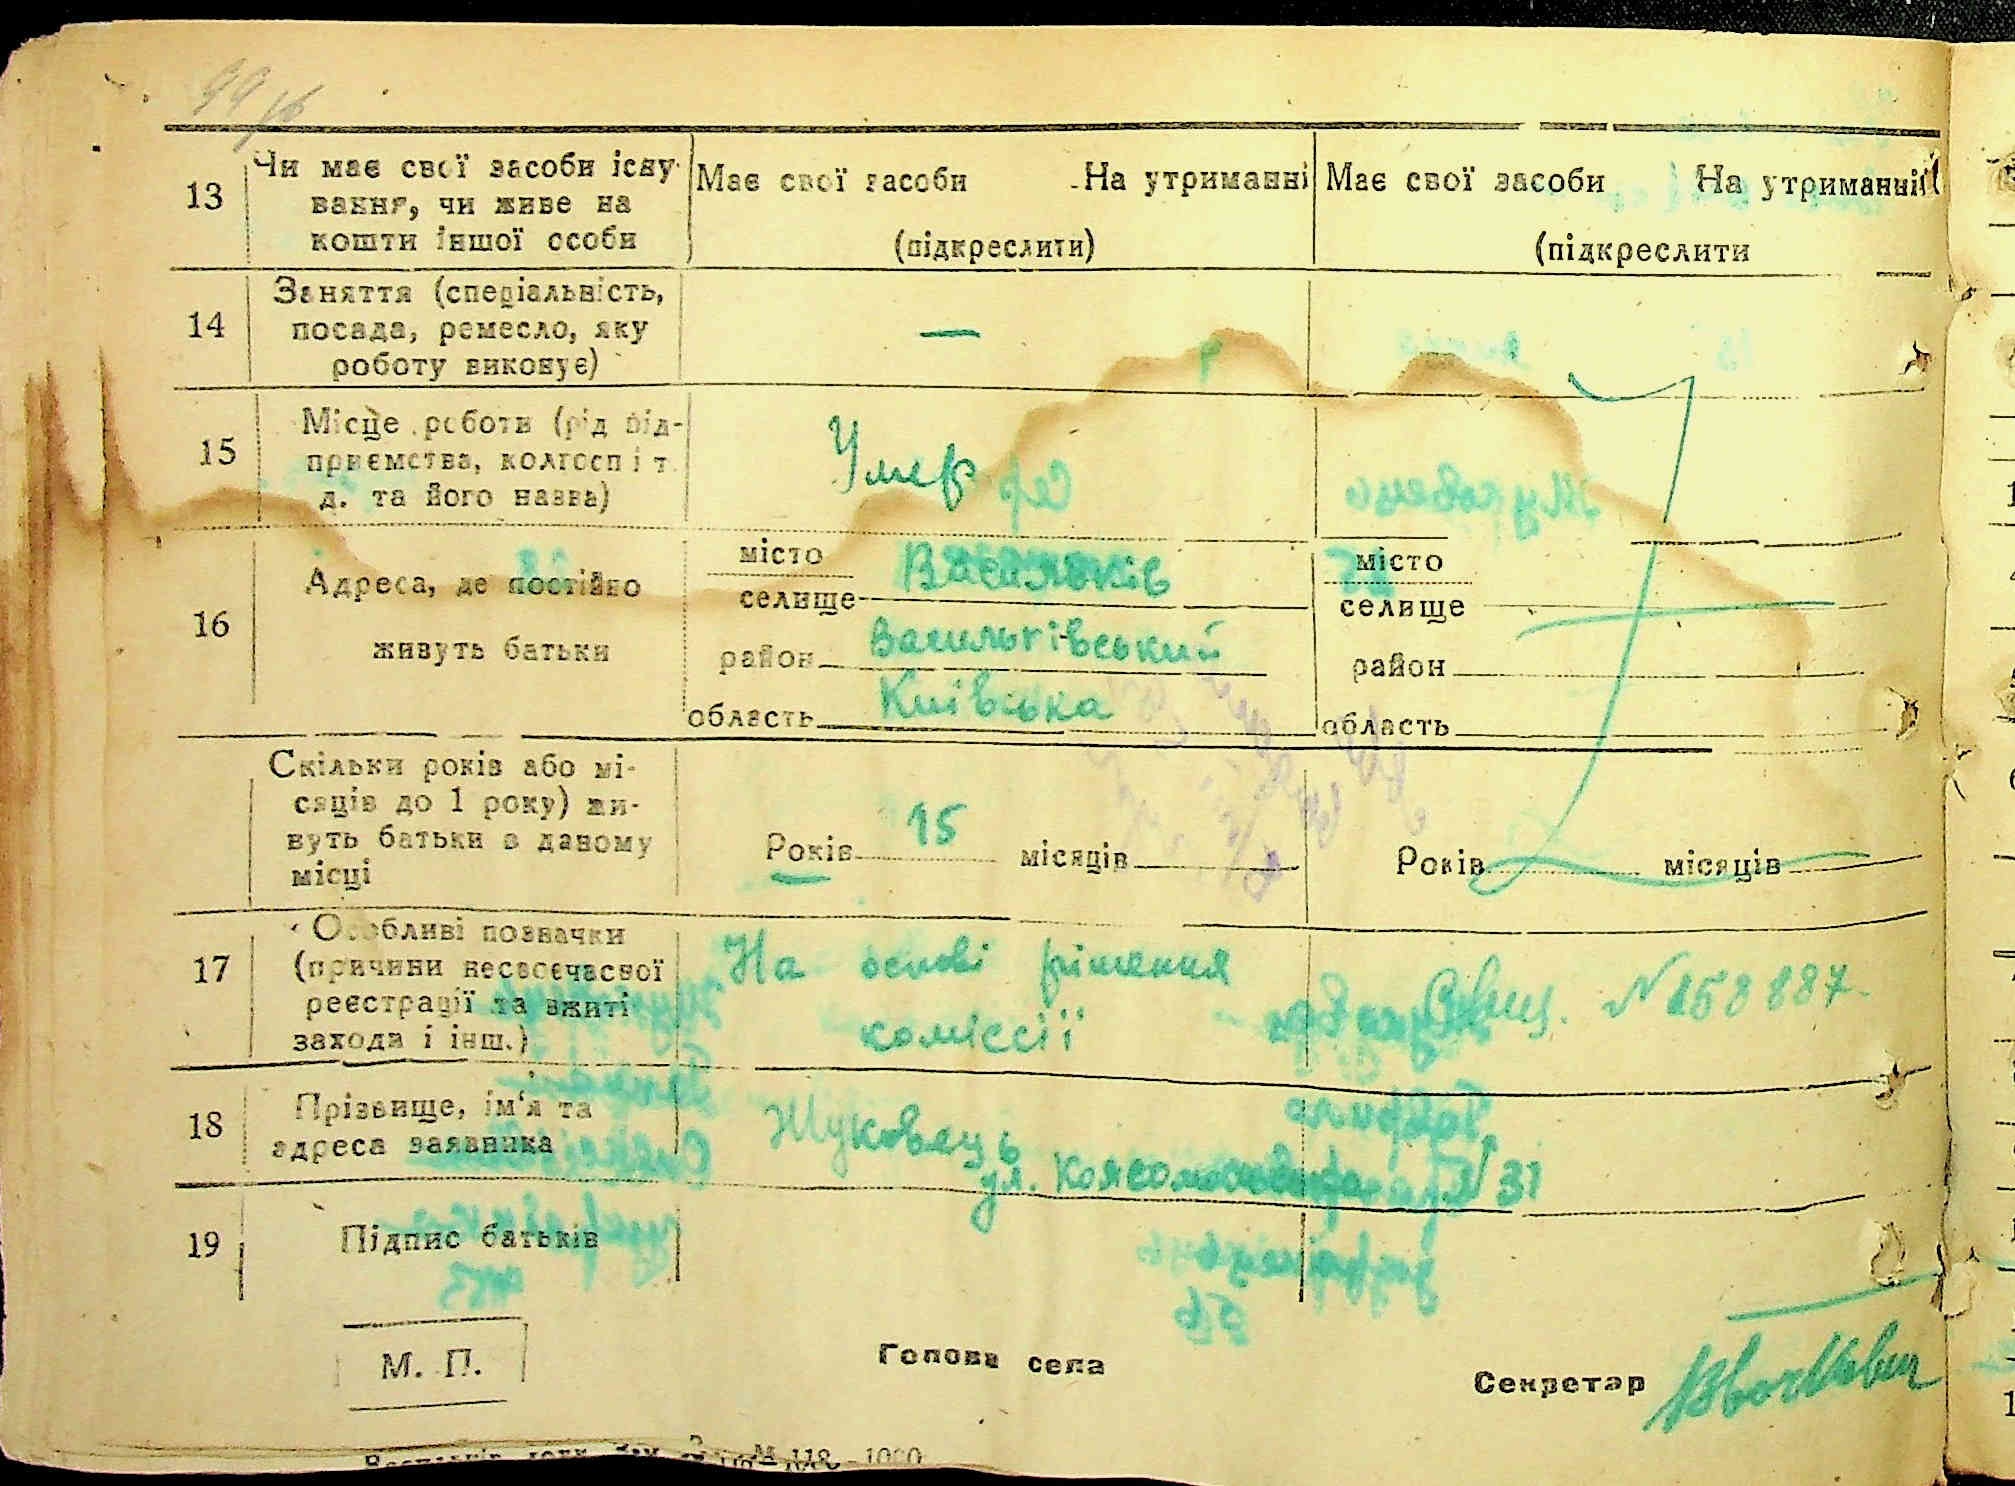 99 зв
13 Чи має свої засоби існу- Має свої засоби На утриманні Має свої засоби На утриманні
вання, чи живе на
кошти іншої особи (підкреслити) (підкреслити
Заняття (спеціальність,
14 посада, ремесло, яку —
роботу виконує)
Місце роботи (рід під-
15 приємства, колгосп і т. Умер
д. та його назва)
місто Васильків місто
16 Адреса, де постійно селище селище
живуть батьки район Васильківський район
область Київська область
Скільки років або мі-
сяців до 1 року) жи-
вуть батьки в даному Років 15 місяців Років місяців
місці
Особливі позначки
17 (причини несвоєчасної На основі рішення N 158887
реєстрації та вжиті коміссії
заходи і інш.)
18 Прізвище, ім'я та Жуковець
адреса заявника ул. 31
19 Підпис батьків
М. П. Голова села Секретар